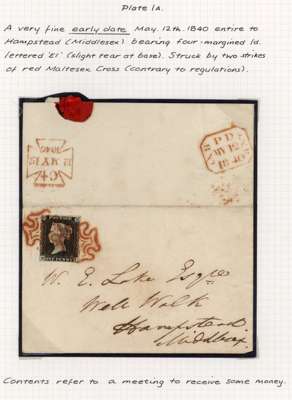 Plate 1A.
A very fine early date May. 12th. 1840 entire to
Hampstead (Middlesex) bearing four-margined 1d.
lettered 'EI' (slight tear at base). Struck by two strikes
of red Maltese Cross (contrary to regulations).
PD
MY 12
1840
W. E. Lake Esqre
Well Walk
Hampstead
Middlesex.
Contents refer to a meeting to receive some money.